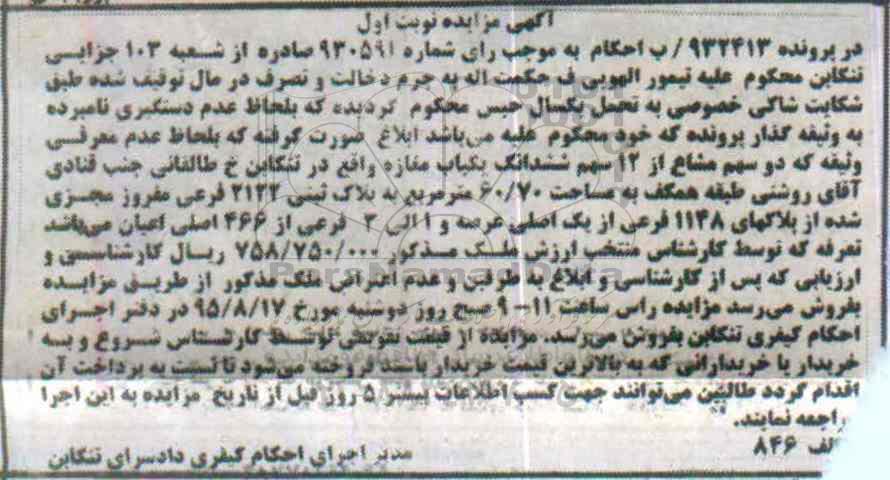 آگهی مزایده نوبت اول
در پرونده ۹۳۲۴۱۳/ ب احکام به موجب رای شماره ۹۳۰۵۹۱ صادره از شعبه ۱۰۳ جزایی
تنکابن محکوم علیه تیمور الهویی ف حکمت اله به جرم دخالت و تصرف در مال توقیف شده طبق
شکایت شاکی خصوصی به تحمل یکسال حبس محکوم گردیده که بلحاظ عدم دستگیری نامبرده
به وثیقه گذار پرونده که خود محکوم علیه می‌باشد ابلاغ صورت گرفته که بلحاظ عدم معرفی
وثیقه که دو سهم مشاع از ۱۲ سهم ششدانگ یکباب مغازه واقع در تنکابن خ طالقانی جنب قنادی
آقای روشنی طبقه همکف به مساحت ۶۰/۷۰ مترمربع به پلاک ثبتی ۲۱۲۲ فرعی مفروز مجزی
شده از پلاکهای ۱۱۴۸ فرعی از یک اصلی عرصه و ۱ الی ۳ فرعی از ۴۶۶ اصلی اعیان می‌باشد
تعرفه که توسط کارشناس منتخب ارزش ملک مذکور ۷۵۸/۷۵۰/۰۰۰ ریال کارشناسی و
ارزیابی که پس از کارشناسی و ابلاغ به طرفین و عدم اعتراض ملک مذکور از طریق مزایده
بفروش می‌رسد مزایده راس ساعت ۱۱-۹ صبح روز دوشنبه مورخ ۹۵/۸/۱۷ در دفتر اجرای
احکام کیفری تنکابن بفروش می‌رسد. مزایده از قیمت تقویمی توسط کارشناس شروع و به
خریدار یا خریدارانی که به بالاترین قیمت خریدار باشند فروخته می‌شود تا نسبت به پرداخت آن
اقدام گردد طالبین می‌توانند جهت کسب اطلاعات بیشتر ۵ روز قبل از تاریخ مزایده به این اجرا
راجعه نمایند.
لف ۸۴۶
مدیر اجرای احکام کیفری دادسرای تنکابن
ParsNamadData